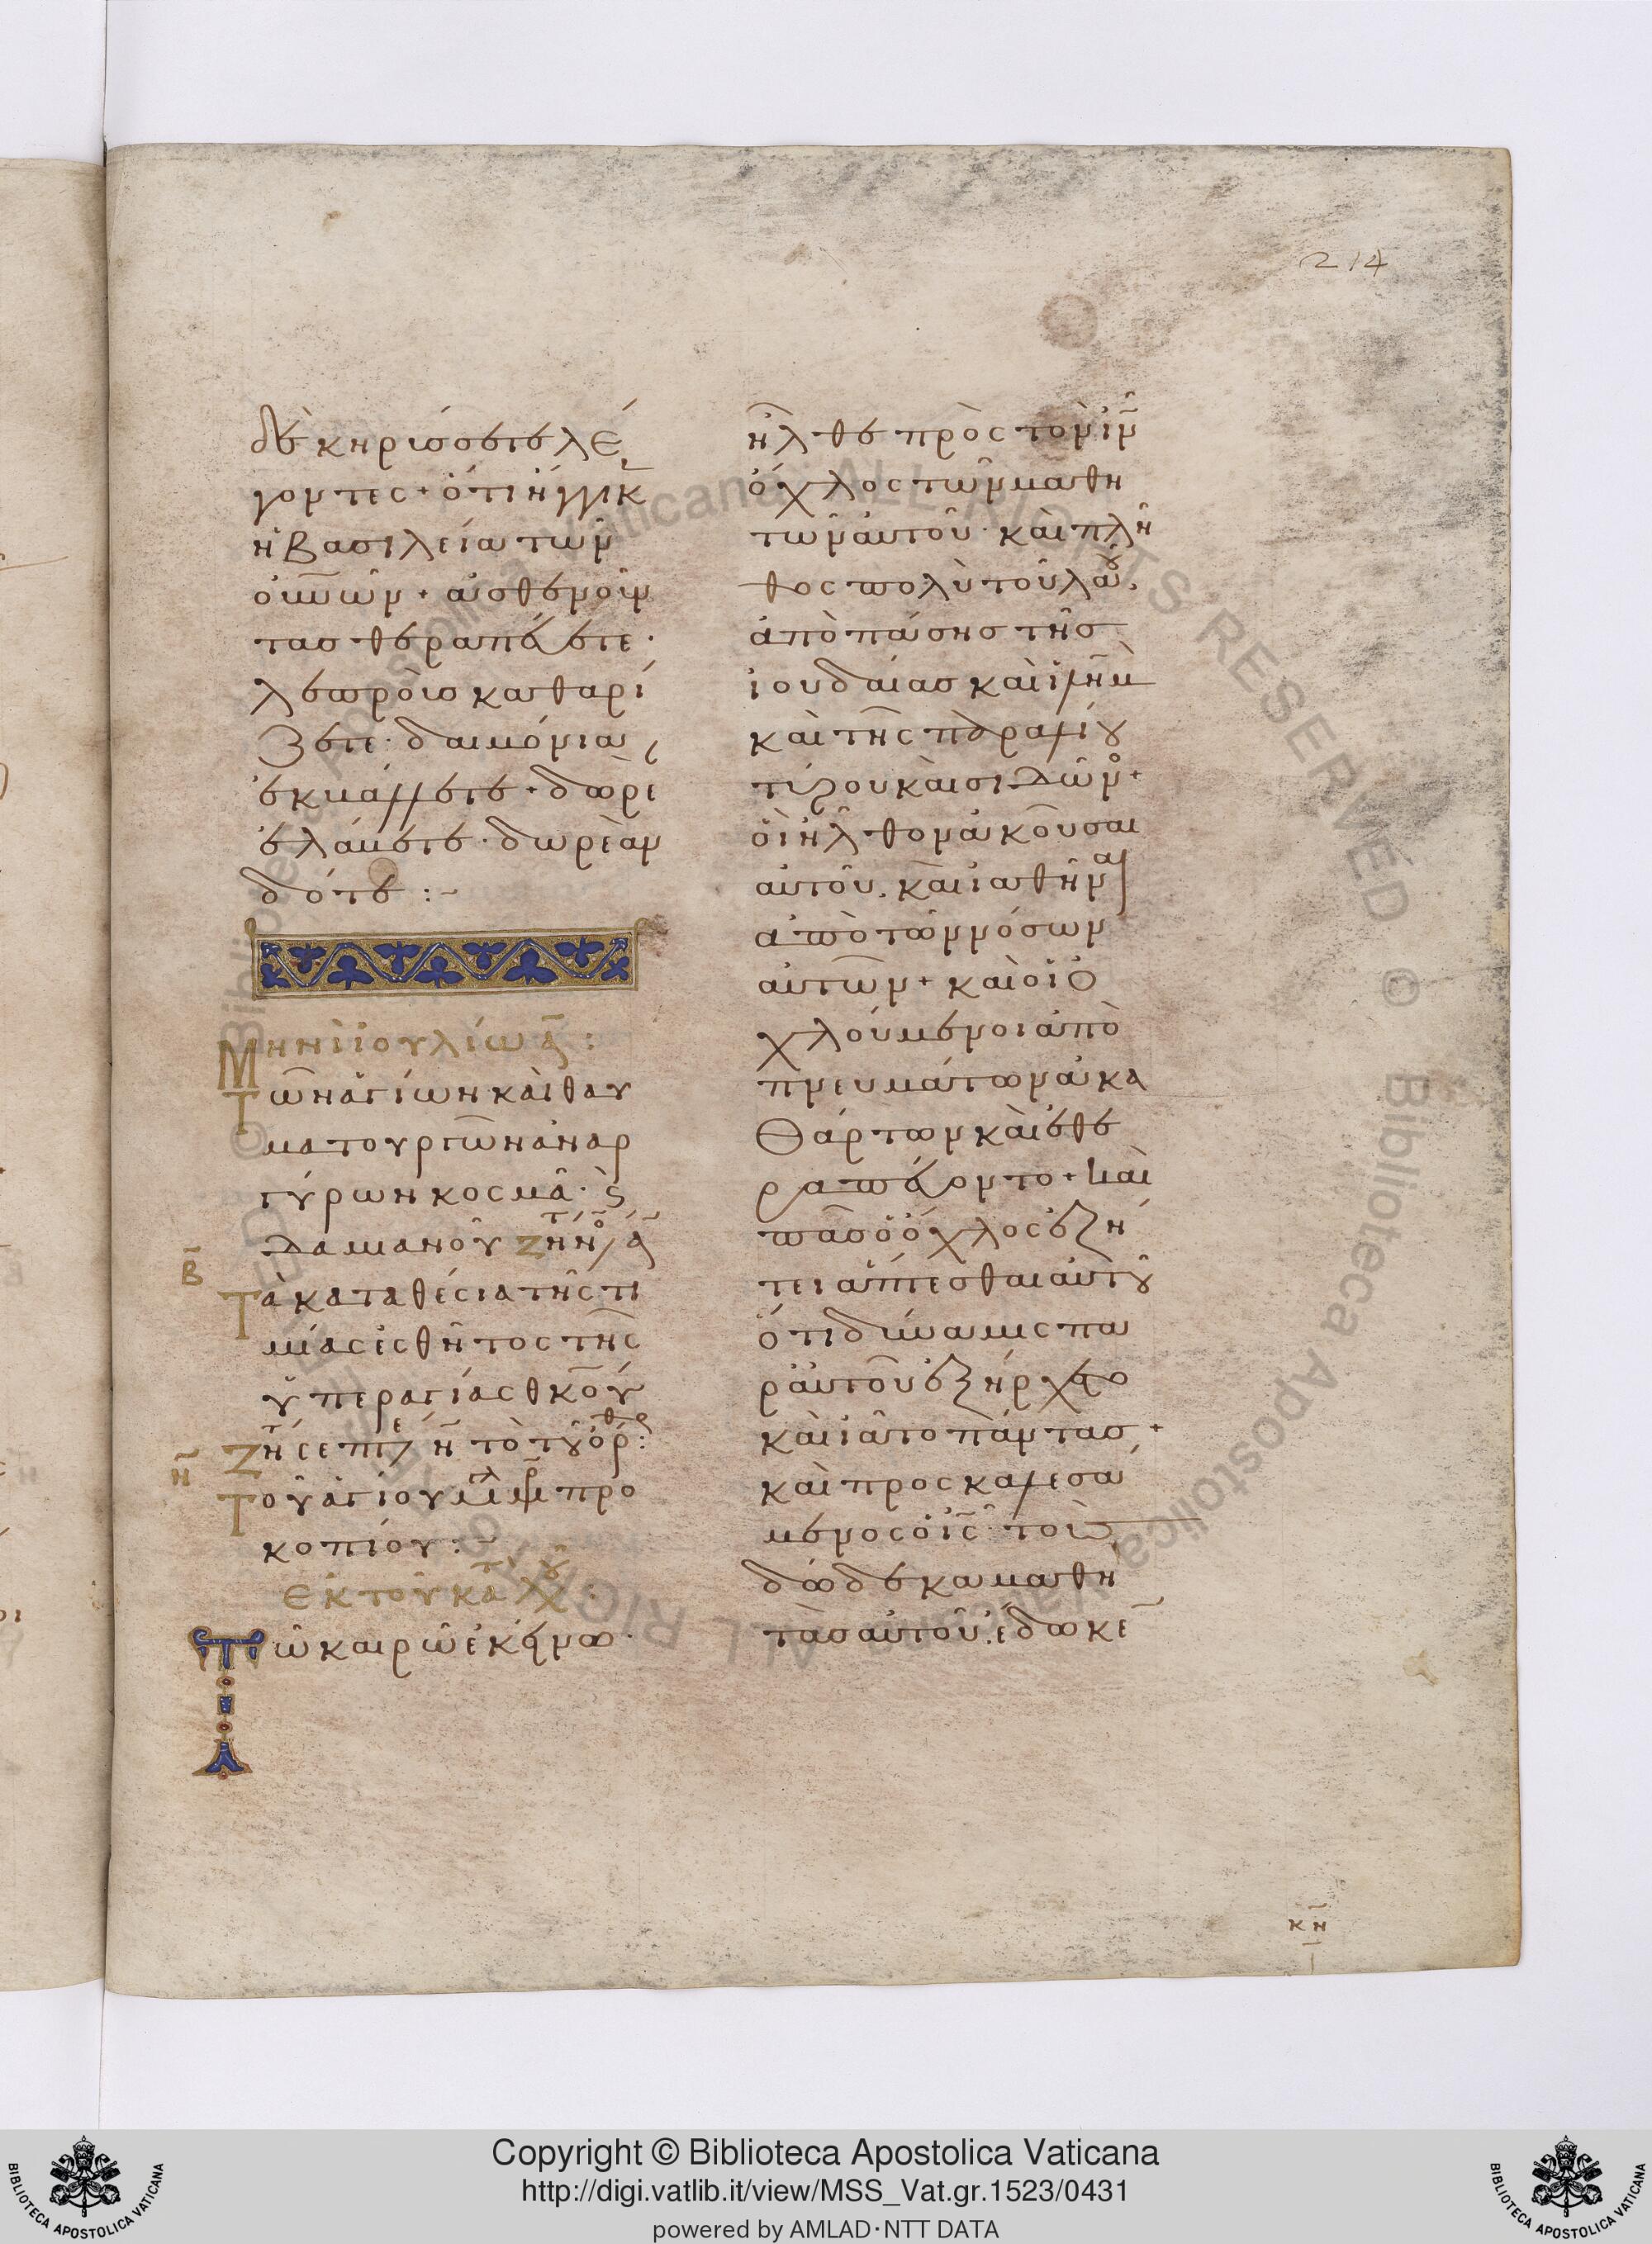 214
δὲ κηρύσσετε λέ
γοντες + ὅτι ἤγγικ
ἡ βασιλεία τῶν
οὐνῶν + ἀσθενοῦν
τας θεραπεύετε ·
λεπροὺς καθαρί
ζετε · δαιμόνια
ἐκβάλλετε + δωρε
ἐλάβετε · δωρεὰν
δότε :-
Μηνὶ ἰουλίω ᾱ :
Τῶν ἁγίων καὶ θαυ
ματουργῶν ἀναρ
γύρων κοσμᾶ · ϛ
δαμιανοῦ
β̄
Τὰ καταθέσια τῆς τι
μίας ἐσθῆτος τῆς
ὑπεραγίας θκου
η̄
Τοῦ ἁγίου μεγλμρ προ
κοπίου :-
ἐκ τοῦ κατ λου :
Τῶ καιρῶ ἐκείνω ·
ἦλθε πρὸς τὸν ιν
ὄχλος τῶν μαθη
τῶν αὐτοῦ · καὶ πλῆ
θος πολὺ τοῦ λαοῦ,
ἀπὸ πάσης τῆς
ἰουδαίας καὶ ιλημ
καὶ τῆς παραλίου
τύρου καὶ σιδῶνο +
οἳ ἦλθον ἀκοῦσαι
αὐτοῦ, καὶ ἰαθῆναι
ἀπὸ τῶν νόσων
αὐτῶν + καὶ οἱ ὀ
χλούμενοι ἀπὸ
πνευμάτων ἀκα
θάρτων καὶ ἐθε
ραπεύοντο + καὶ
πᾶς ὁ ὄχλος ἐζή
τει ἅπτεσθαι αὐτοῦ
ὅτι δύναμις πα
ρ' αὐτοῦ ἐξήρχετο
καὶ ἰᾶτο πάντας +
καὶ προσκαλεσά
μενος ὁ ις τοὺς
δώδεκα μαθη
τὰς αὐτοῦ, ἔδωκε
κη
Copyright © Biblioteca Apostolica Vaticana
http://digi.vatlib.it/view/MSS_Vat.gr.1523/0431
powered by AMLAD·NTT DATA
BIBLIOTECA APOSTOLICA VATICANA
BIBLIOTECA APOSTOLICA VATICANA